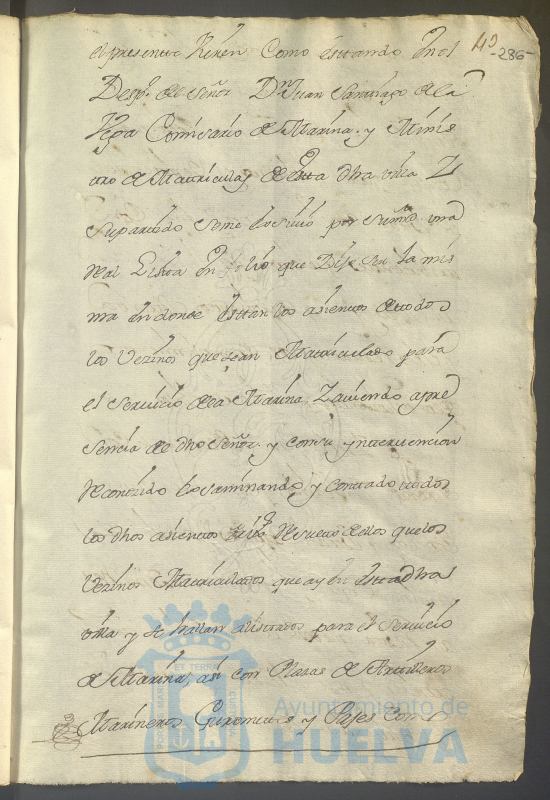 143
-286-
el presente Como estando En el
Desp.º de Señor D.n Juan Santiago de la
Vega Comisario de Marina y Minis
tro de Matricula, de esta dha villa Z
su partido se me por Su mrd una
Real En folio que Dijo Ser la mis
ma en donde Estan los asientos de todos
los Vezinos que sean Matriculado para
el Servicio de la Marina, Z aviendo a pre
sencia de dho Señor y con su yntervención
Reconozido Y esaminando y contado todos
los dhos asientos de ellos que los
Vezinos Matriculados que ay en esta dha
villa y se hallan alistados para el Servicio
de Marina, asi con Plazas de Artilleros
Marineros Grumetes y Pajes Con
PORTUS MARIS
ET TERRÆ
CUSTODIA
Ayuntamiento de
HUELVA